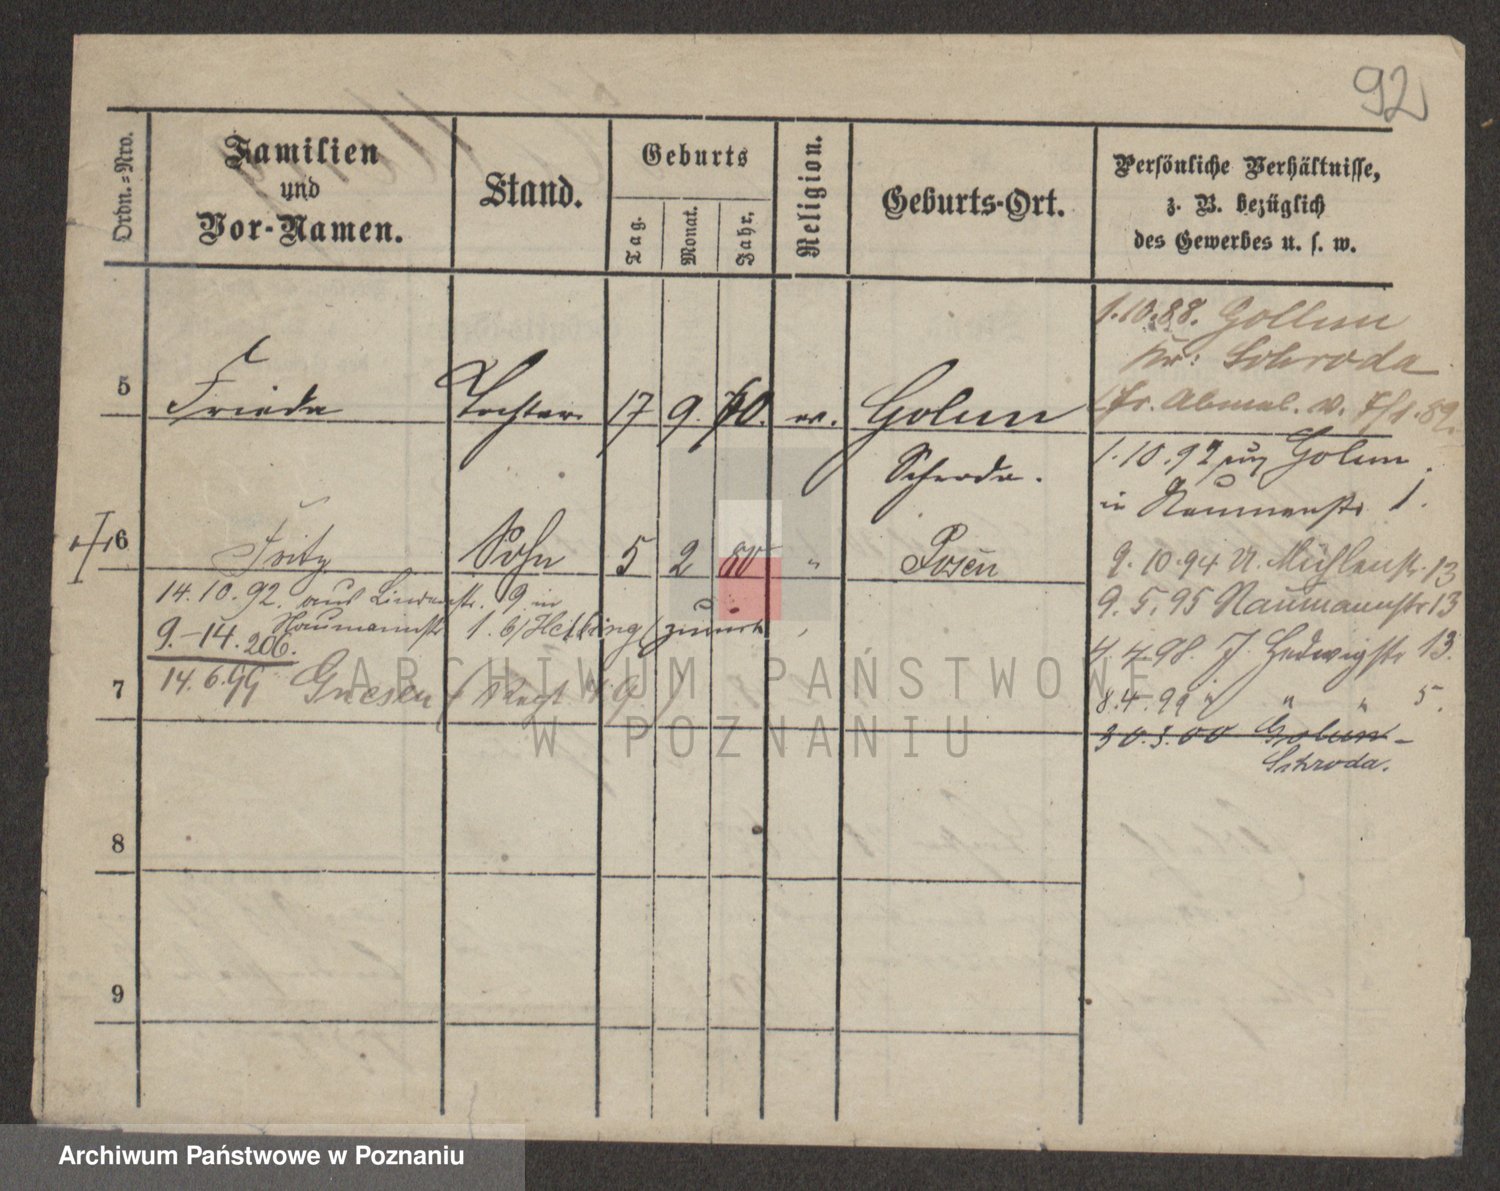 92
Ordn.-Nro.
Familien
und
Vor-Namen.
Stand.
Geburts
Tag.
Monat.
Jahr.
Religion.
Geburts-Ort.
Persönliche Verhältnisse,
z. B. bezüglich
des Gewerbes u. s. w.
1.10.88. Gollun
Kr: Schroda
fr. Abmel. v. 7/1.89.
5 Frieda Tochter 17 9. 70. ev. Golun
Schroda.
1.10.92 Golun
in Naumannstr 1.
6 Fritz Sohn 5 2 80 " Posen
9.10.94 U. Mühlenstr. 13
9.5.95 Naumannstr 13
4.4.98. J. Hedwigstr 13.
8.4.99 " " " 5.
30.3.00 Golun-
Schroda.
14.10.92. aus Lindenstr. 9 in
Naumannstr 1. b/Helling (zurück
9.-14.206.
7 14.6.99 Gnesen
8
9
ARCHIWUM PAŃSTWOWE
W POZNANIU
Archiwum Państwowe w Poznaniu